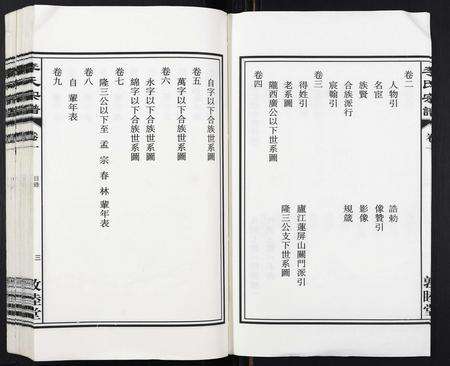 李氏宗譜
卷一
敦睦堂
卷二
人物引
誥勅
名宦
像贊引
族賢
影像
合族派行
規箴
宸翰引
卷三
得姓引
廬江蓮屏山關門派引
老系圖
隆三公支下世系圖
隴西廣公以下世系圖
卷四
自字以下合族世系圖
卷五
萬字以下合族世系圖
卷六
永字以下合族世系圖
綿字以下合族世系圖
卷七
隆三公以下至 孟 宗 春 林 輩年表
卷八
自 輩年表
卷九
李氏宗譜
卷一
目錄
三
敦睦堂